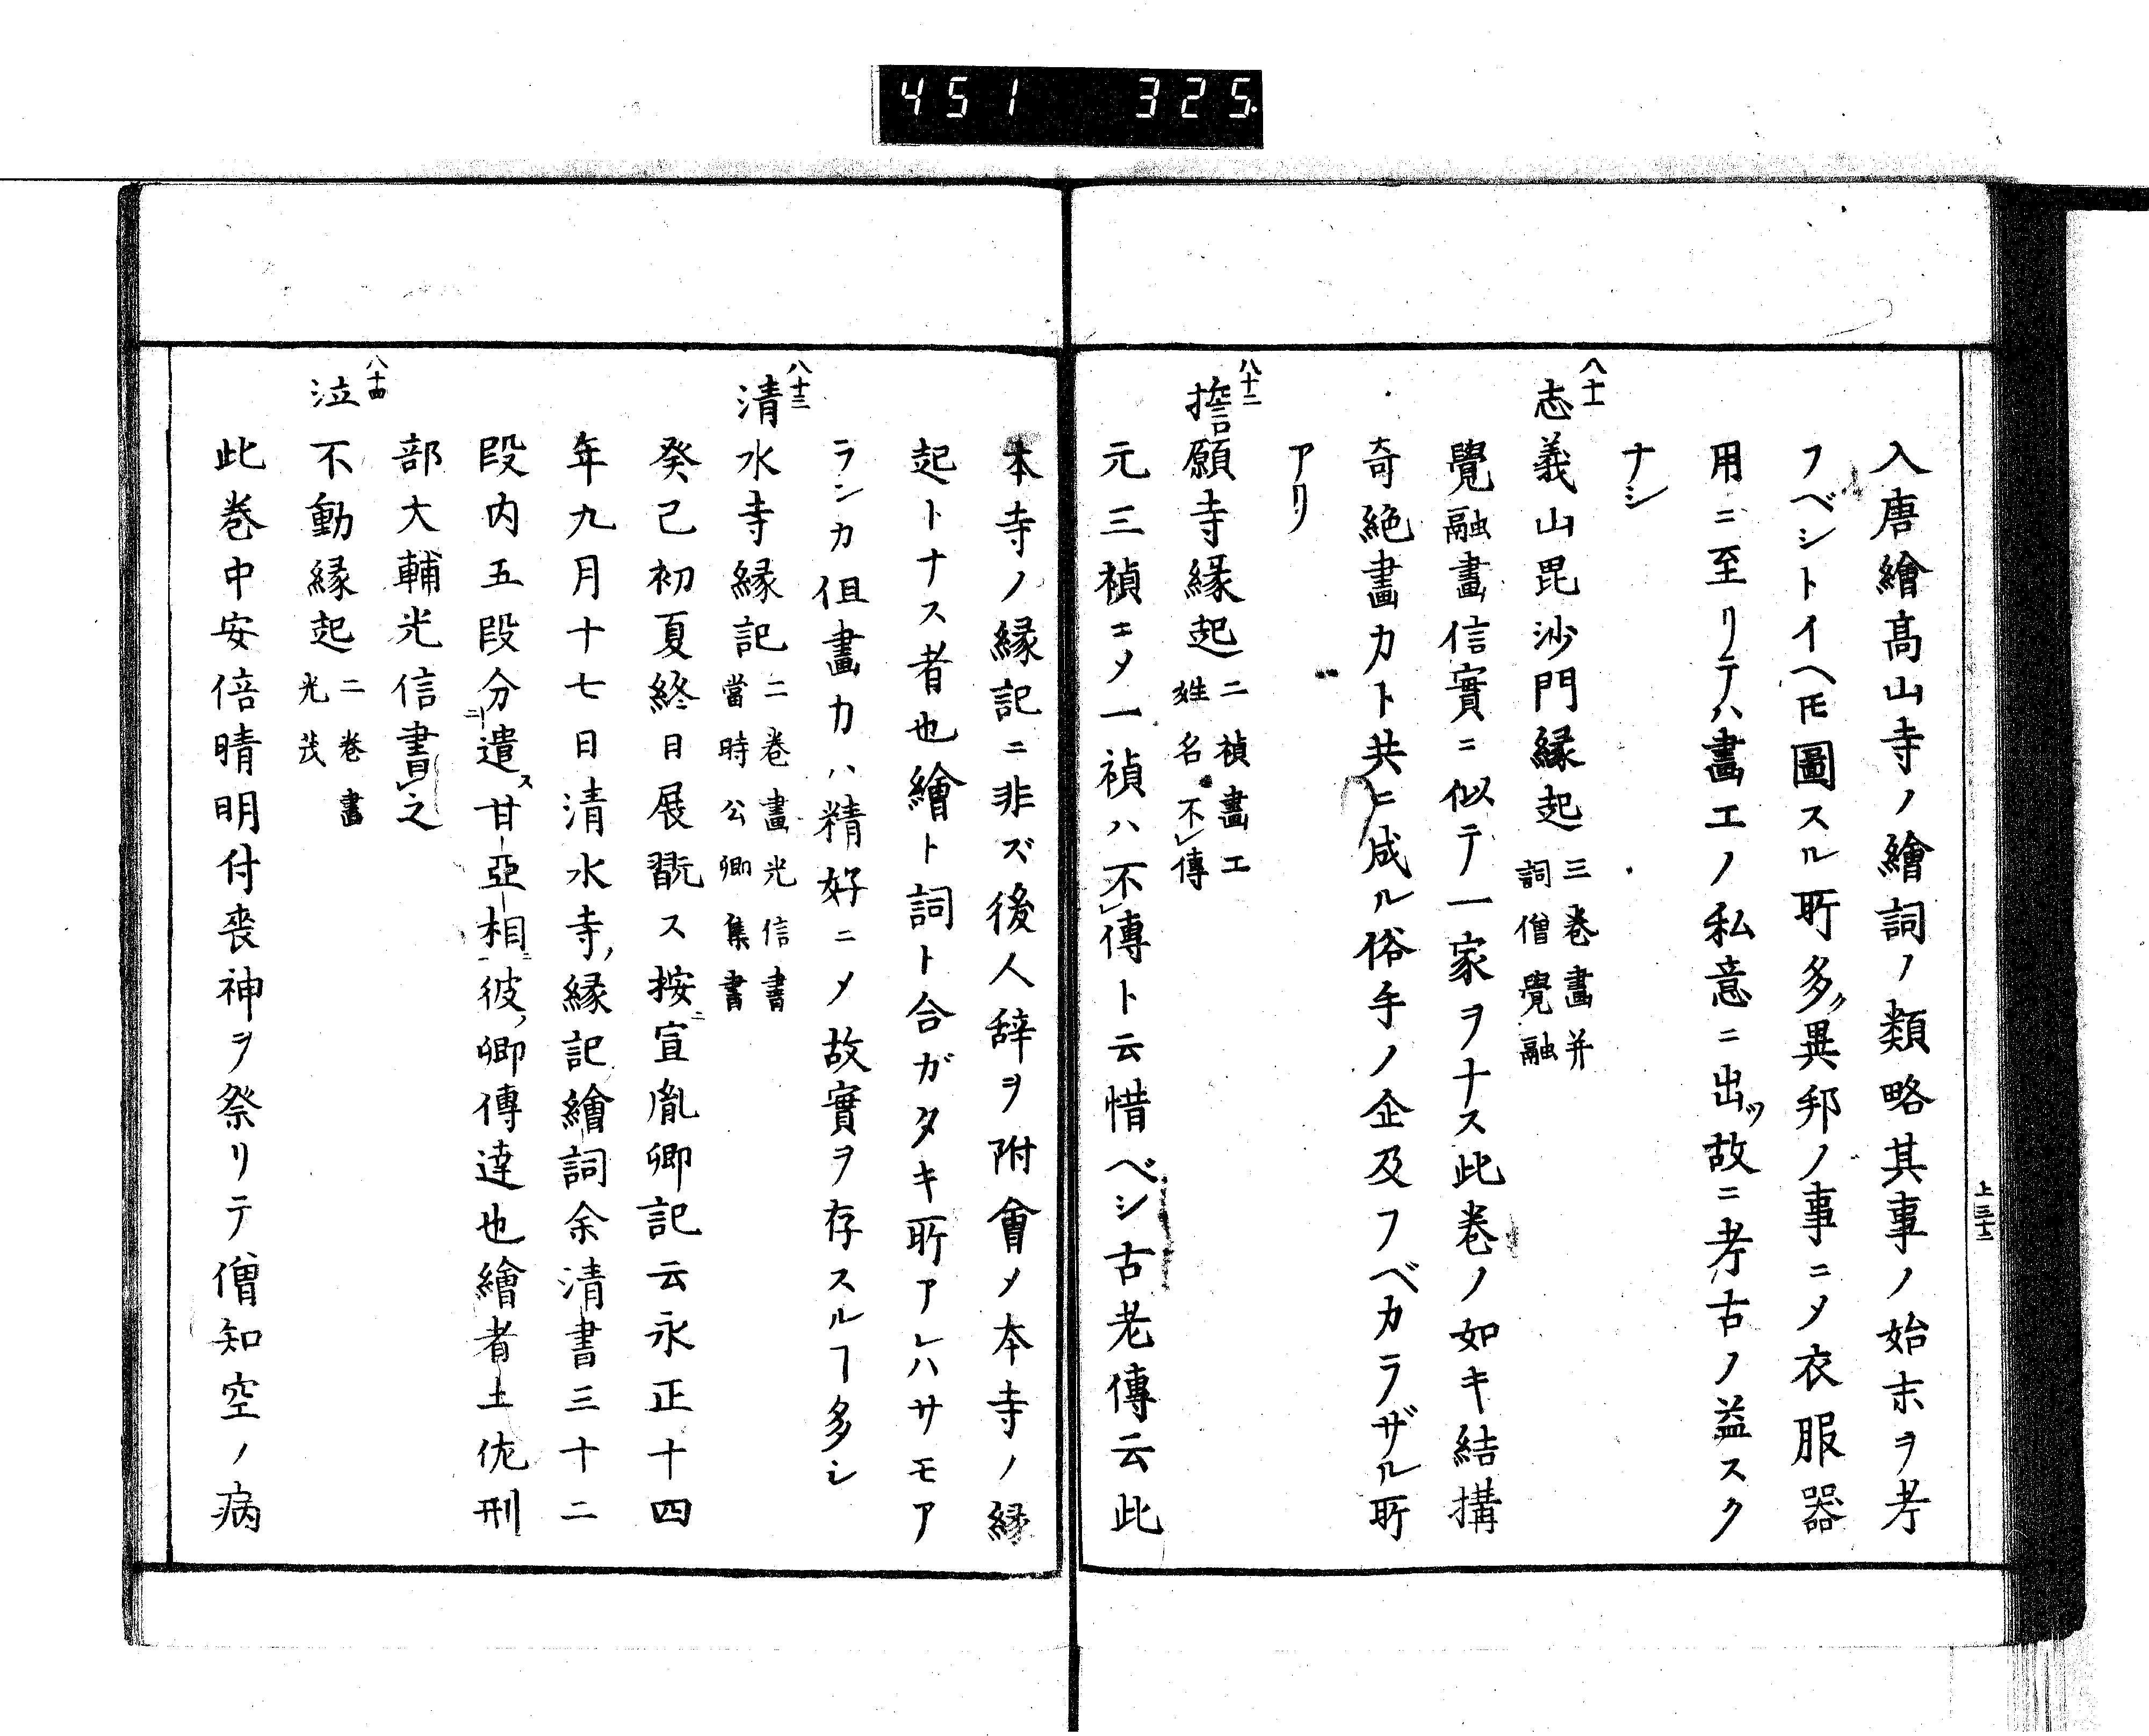 451 325
上三十二
入唐繪高山寺ノ繪詞ノ類略其事ノ始末ヲ考
フベシトイヘ𪜈圖スル所多ク異邦ノ事ニメ衣服器
用ニ至リテハ畫工ノ私意ニ出ツ故ニ考古ノ益スク
ナシ
八十一
志義山毘沙門縁起 三巻畫并
詞僧覺融
覺融畫信實ニ似テ一家ヲナス此巻ノ如キ結搆
奇絶畫カト共ニ成ル俗手ノ企及フベカラザル所
アリ
八十二
擔願寺縁起 二禎畫工
姓名不傳
元三禎ニメ一禎ハ不傳ト云惜ベシ古老傳云此
本寺ノ縁記ニ非ズ後人辞ヲ附會メ本寺ノ縁
起トナス者也繪ト詞ト合ガタキ所アレハサモア
ランカ但畫力ハ精好ニメ故實ヲ存スルヿ多シ
八十三
清水寺縁記 二巻畫光信書
當時公卿集書
癸己初夏終日展翫ス按ニ宣胤卿記云永正十四
年九月十七日清水寺ノ縁記繪詞余清書三十二
段内五段分遣ス甘亞相ニ彼ノ卿傳達也繪者土佐刑
部大輔光信書之
八十四
泣不動縁起 二巻畫
光茂
此巻中安倍晴明付喪神ヲ祭リテ僧知空ノ病